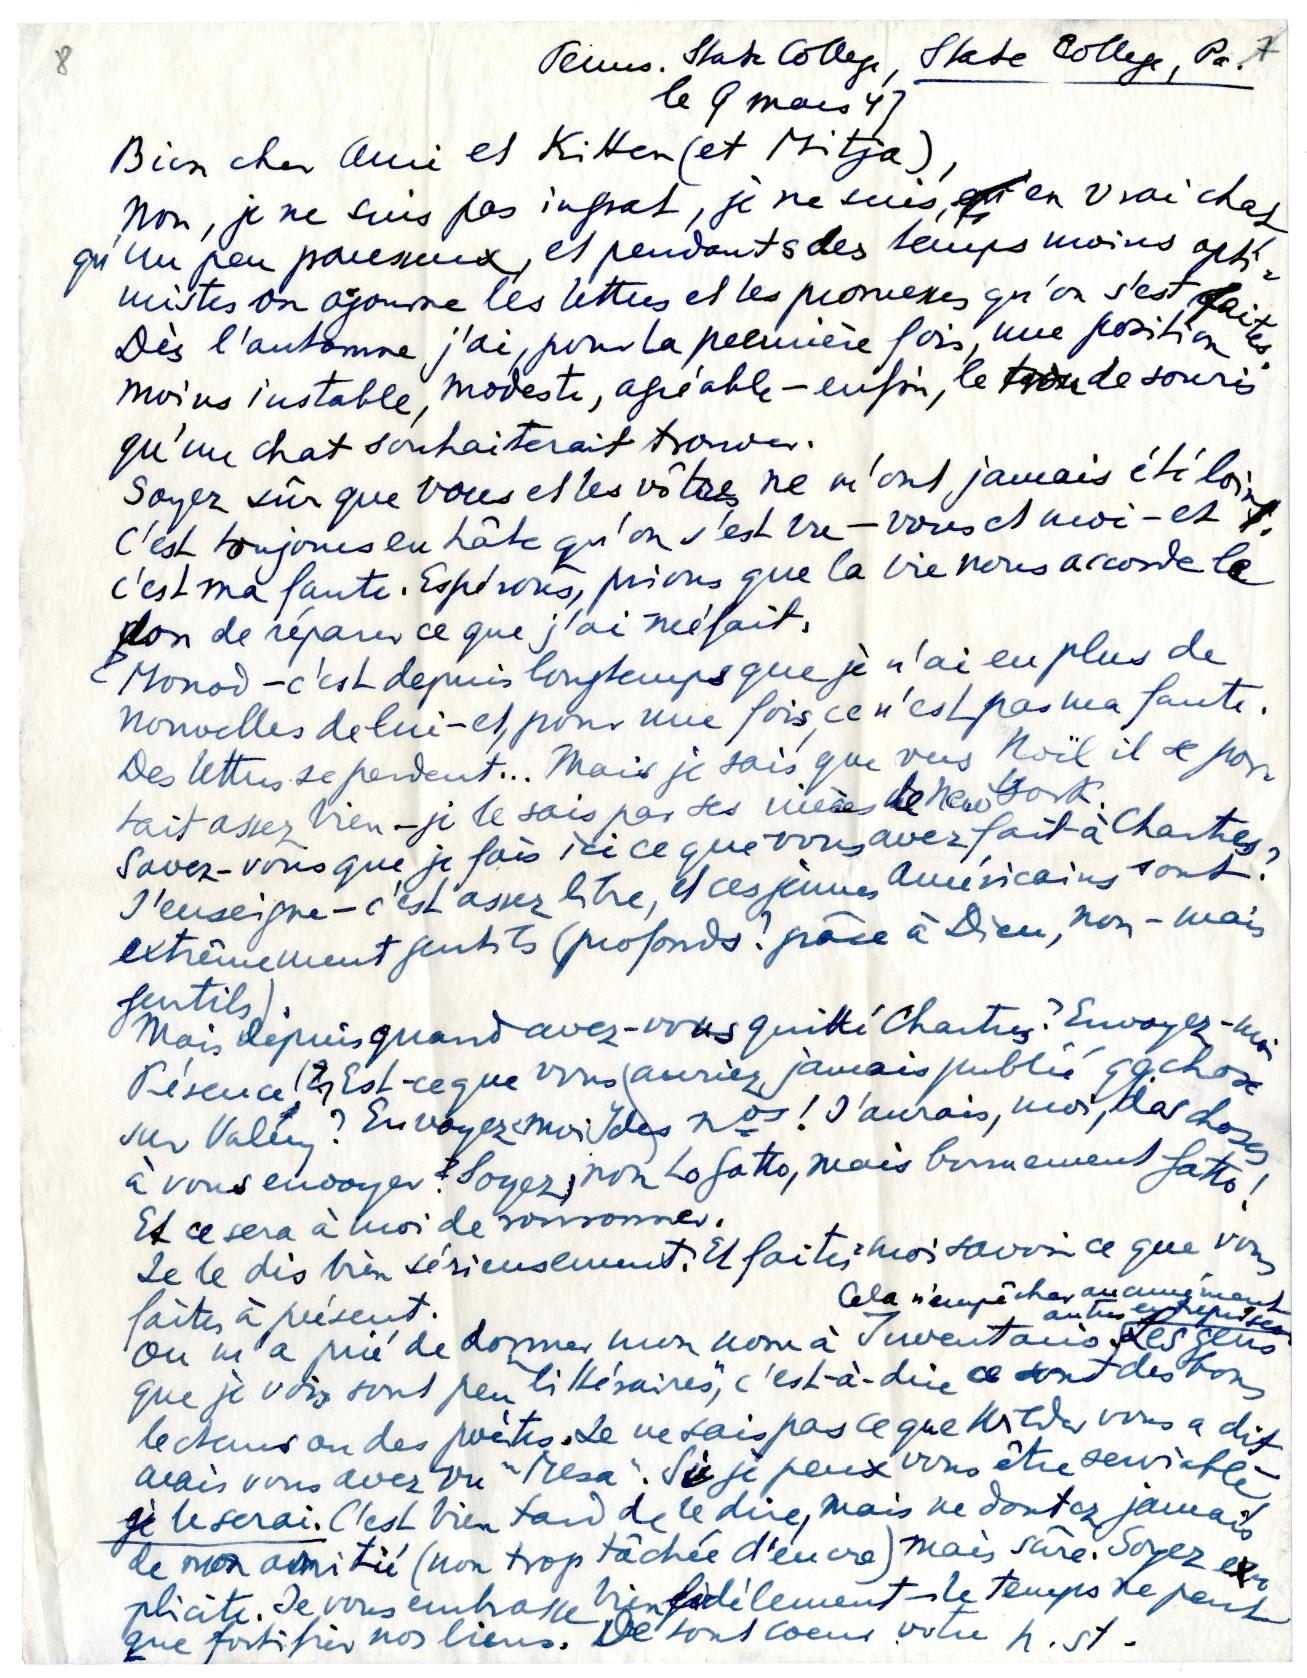 8
7
Penns. State College, State College, Pa.
le 9 mars 47
Bien cher Ami et Kitten (et Mitja),
Non, je ne suis pas ingrat, je ne suis, en vrai chat
qu'un peu paresseux, et pendant des temps moins opti-
mistes on ajourne les lettres et les promesses qu'on s'est faites.
Dès l'automne j'ai, pour la première fois, une position
moins instable, modeste, agréable – enfin, le trou de souris
qu'un chat souhaiterait trouver.
Soyez sûr que vous et les vôtres ne m'ont jamais été loin.
C'est toujours en hâte qu'on s'est vu – vous et moi – et
c'est ma faute. Espérons, prions que la vie nous accorde le
don de réparer ce que j'ai méfait.
Monod – c'est depuis longtemps que je n'ai eu plus de
nouvelles de lui – et, pour une fois, ce n'est pas ma faute.
Des lettres se perdent... Mais je sais que vers Noël il se por-
tait assez bien – je le sais par ses nièces de New York.
Savez-vous que je fais ici ce que vous avez fait à Chartres?
J'enseigne – c'est assez libre, et ces jeunes Américains sont
extrêmement gentils (profonds? grâce à Dieu, non – mais
gentils).
Mais depuis quand avez-vous quitté Chartres? Envoyez-moi
Présence! Est-ce que vous auriez jamais publié qqchose
sur Valéry? Envoyez-moi des nos! J'aurais, moi, des choses
à vous envoyer? Soyez, non Lo Gatto, mais bonnement gatto!
Et ce sera à moi de ronronner.
Je le dis bien sérieusement. Et faites-moi savoir ce que vous
faites à présent.
Cela n'empêcher aucunement
autres entreprises.
On m'a prié de donner mon nom à Inventario. Les gens
que je vois sont peu "littéraires", c'est-à-dire ce sont des bons
lecteurs ou des poètes. Je ne sais pas ce que Wilder vous a dit
mais vous avez vu "Mesa". Si je peux vous être serviable –
je le serai. C'est bien tard de le dire, mais ne doutez jamais
de mon amitié (non trop tâchée d'encre) mais sûre. Soyez ex-
plicite. Je vous embrasse bien fidèlement – le temps ne peut
que fortifier nos liens. De tout coeur votre h. st.